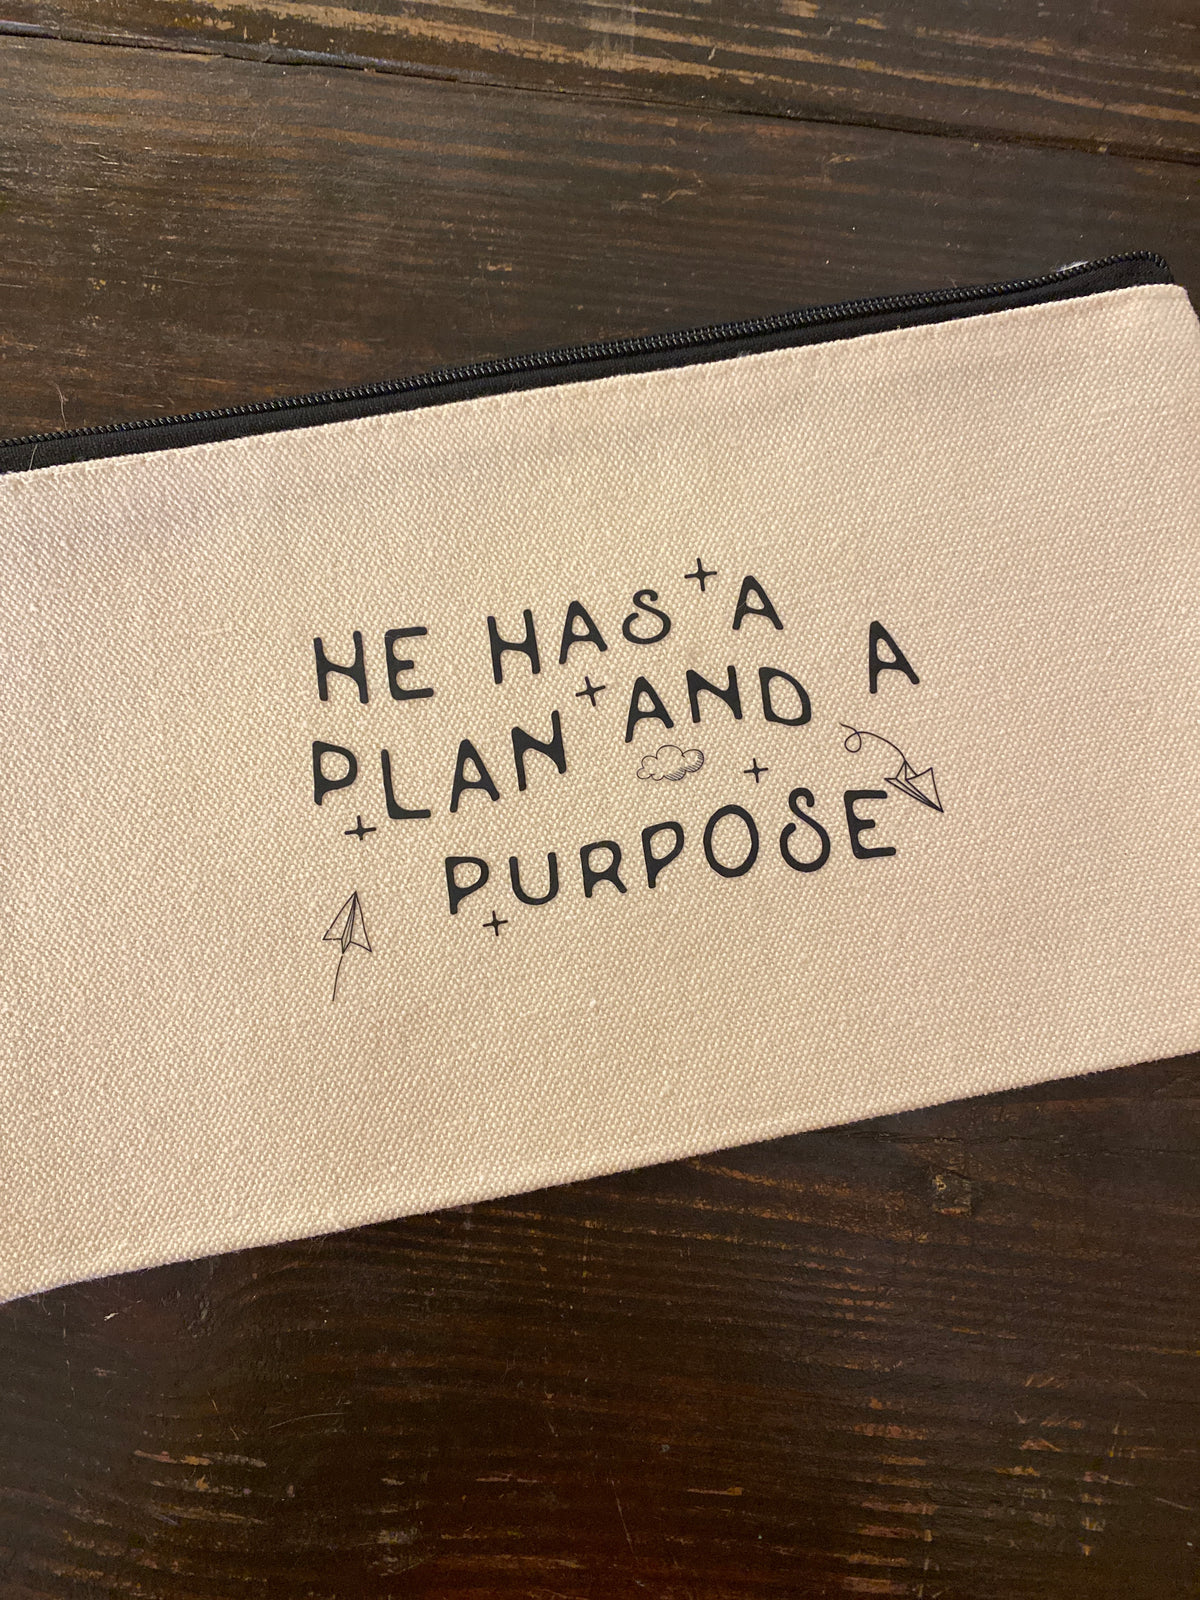 HE HAS A
PLAN AND A
PURPOSE